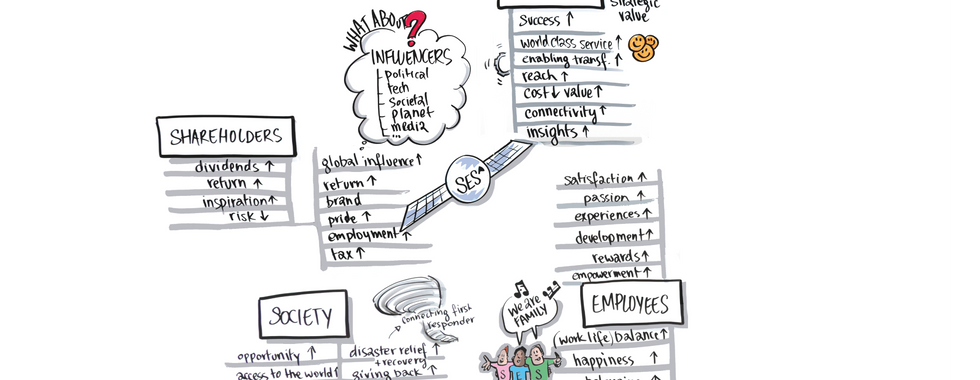 WHAT ABOUT?
INFLUENCERS
political
tech
societal
planet
media
...
strategic
value
Success ↑
world class service ↑
enabling transf. ↑
reach ↑
cost ↓ value ↑
connectivity ↑
insights ↑
SHAREHOLDERS
dividends ↑
return ↑
inspiration ↑
risk ↓
global influence ↑
return ↑
brand
pride ↑
employment ↑
tax ↑
SES
satisfaction ↑
passion ↑
experiences ↑
development ↑
rewards ↑
empowerment ↑
EMPLOYEES
(work life) balance ↑
happiness ↑
SOCIETY
opportunity ↑
access to the world ↑
connecting first
responder
disaster relief ↑
+ recovery
giving back ↑
we are
FAMILY
S
S